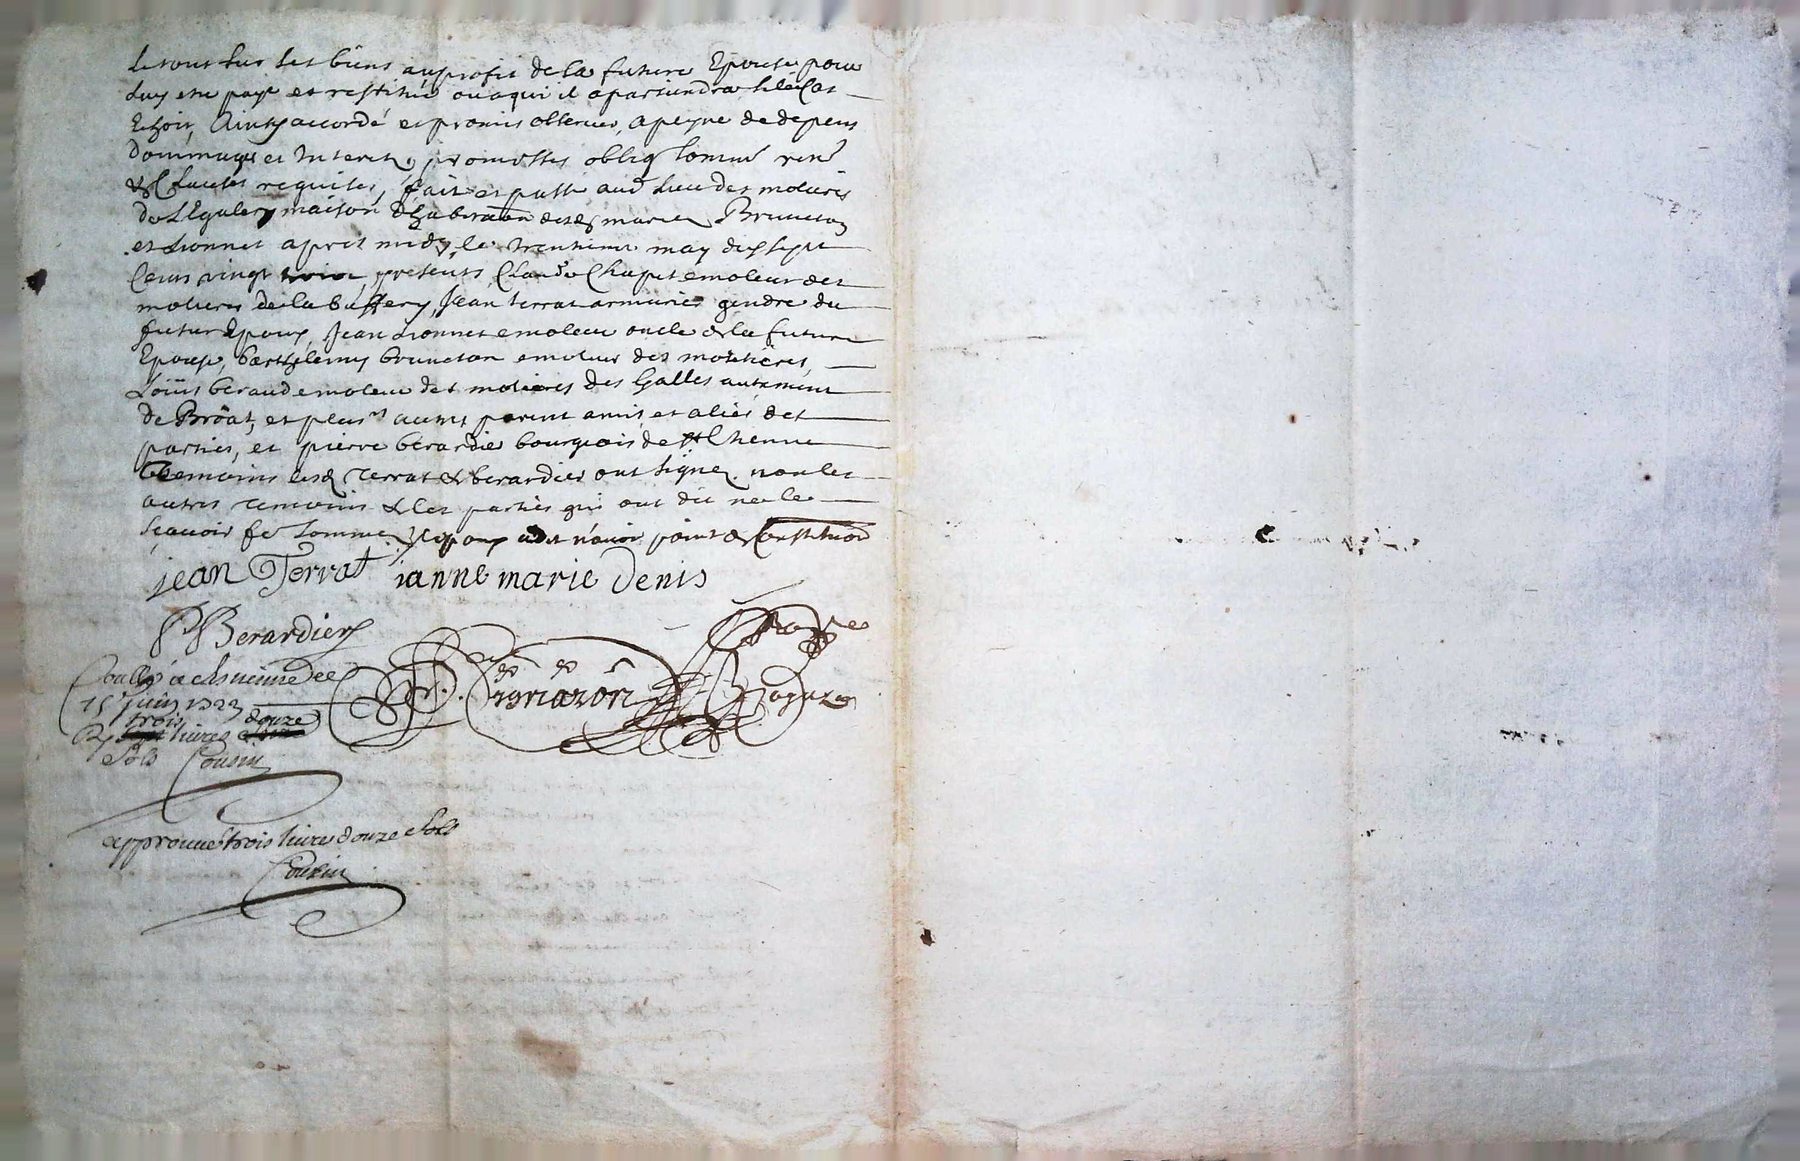 Le tout sur ses biens au profit de la future Epouse pour
luy etre payé et restitué ou a qui il apartiendra le cas
Echoir, Ainsy accordé et promis observer, a peyne de depens
dommages et Interets, promesses obliq soumis renē
& Clauses requises, fait et passé aud lieu des molieres
de maison d'habitaōn desd marie Bruneton
et Lionnet apres midy le trentieme may dix sept
Cens vingt trois, presents Claude Chapit emoleur des
molieres de la buffery, Jean terrat armurier gendre du
futur Epoux, Jean Lionnet emoleur oncle de la future
Epouse, Barthelemy bruneton emoleur des molieres,
Loüis beraud emoleur des molieres des Galles autrement
de Brôat, et plusrs autres parent amis et aliés des
parties, et pierre berardier bourgeois de St Etienne
temoins lesd terrat & berardier ont signé non les
autres temoins & les parties qui ont dit ne le
sçavoir de sommé, Lepoux a dit n'avoir point de Constituōn
jean Terrat ianne marie Denis
P Berardier
Coallé a St Etienne ce
15e juin 1723
trois douze
R livres
Sols Cousin
approuué trois liures douze Sols
Cousin